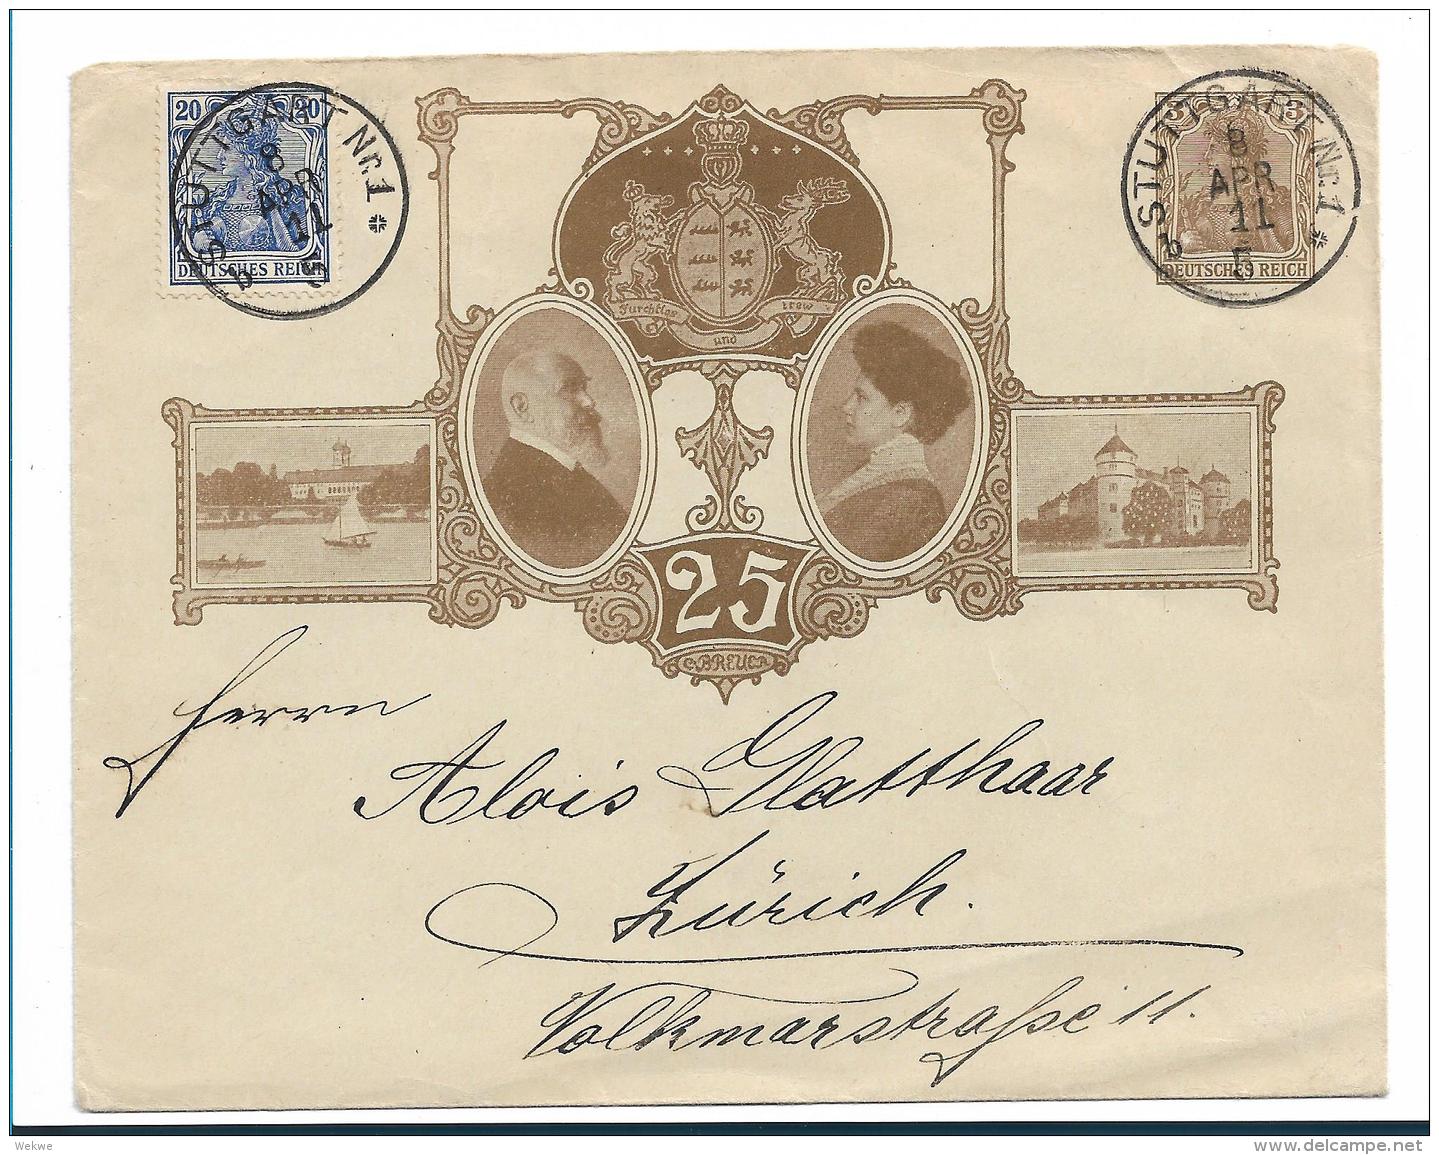 20 20
DEUTSCHES REICH
STUTTGART Nr. 1
8
APR
11
b
3 3
DEUTSCHES REICH
STUTTGART Nr. 1
8
APR
11
5
b
Furchtlos und trew
25
BREUER
Herrn
Alois Glatthaar
Zürich.
Volkmarstraße 11.
Wekwe
www.delcampe.net